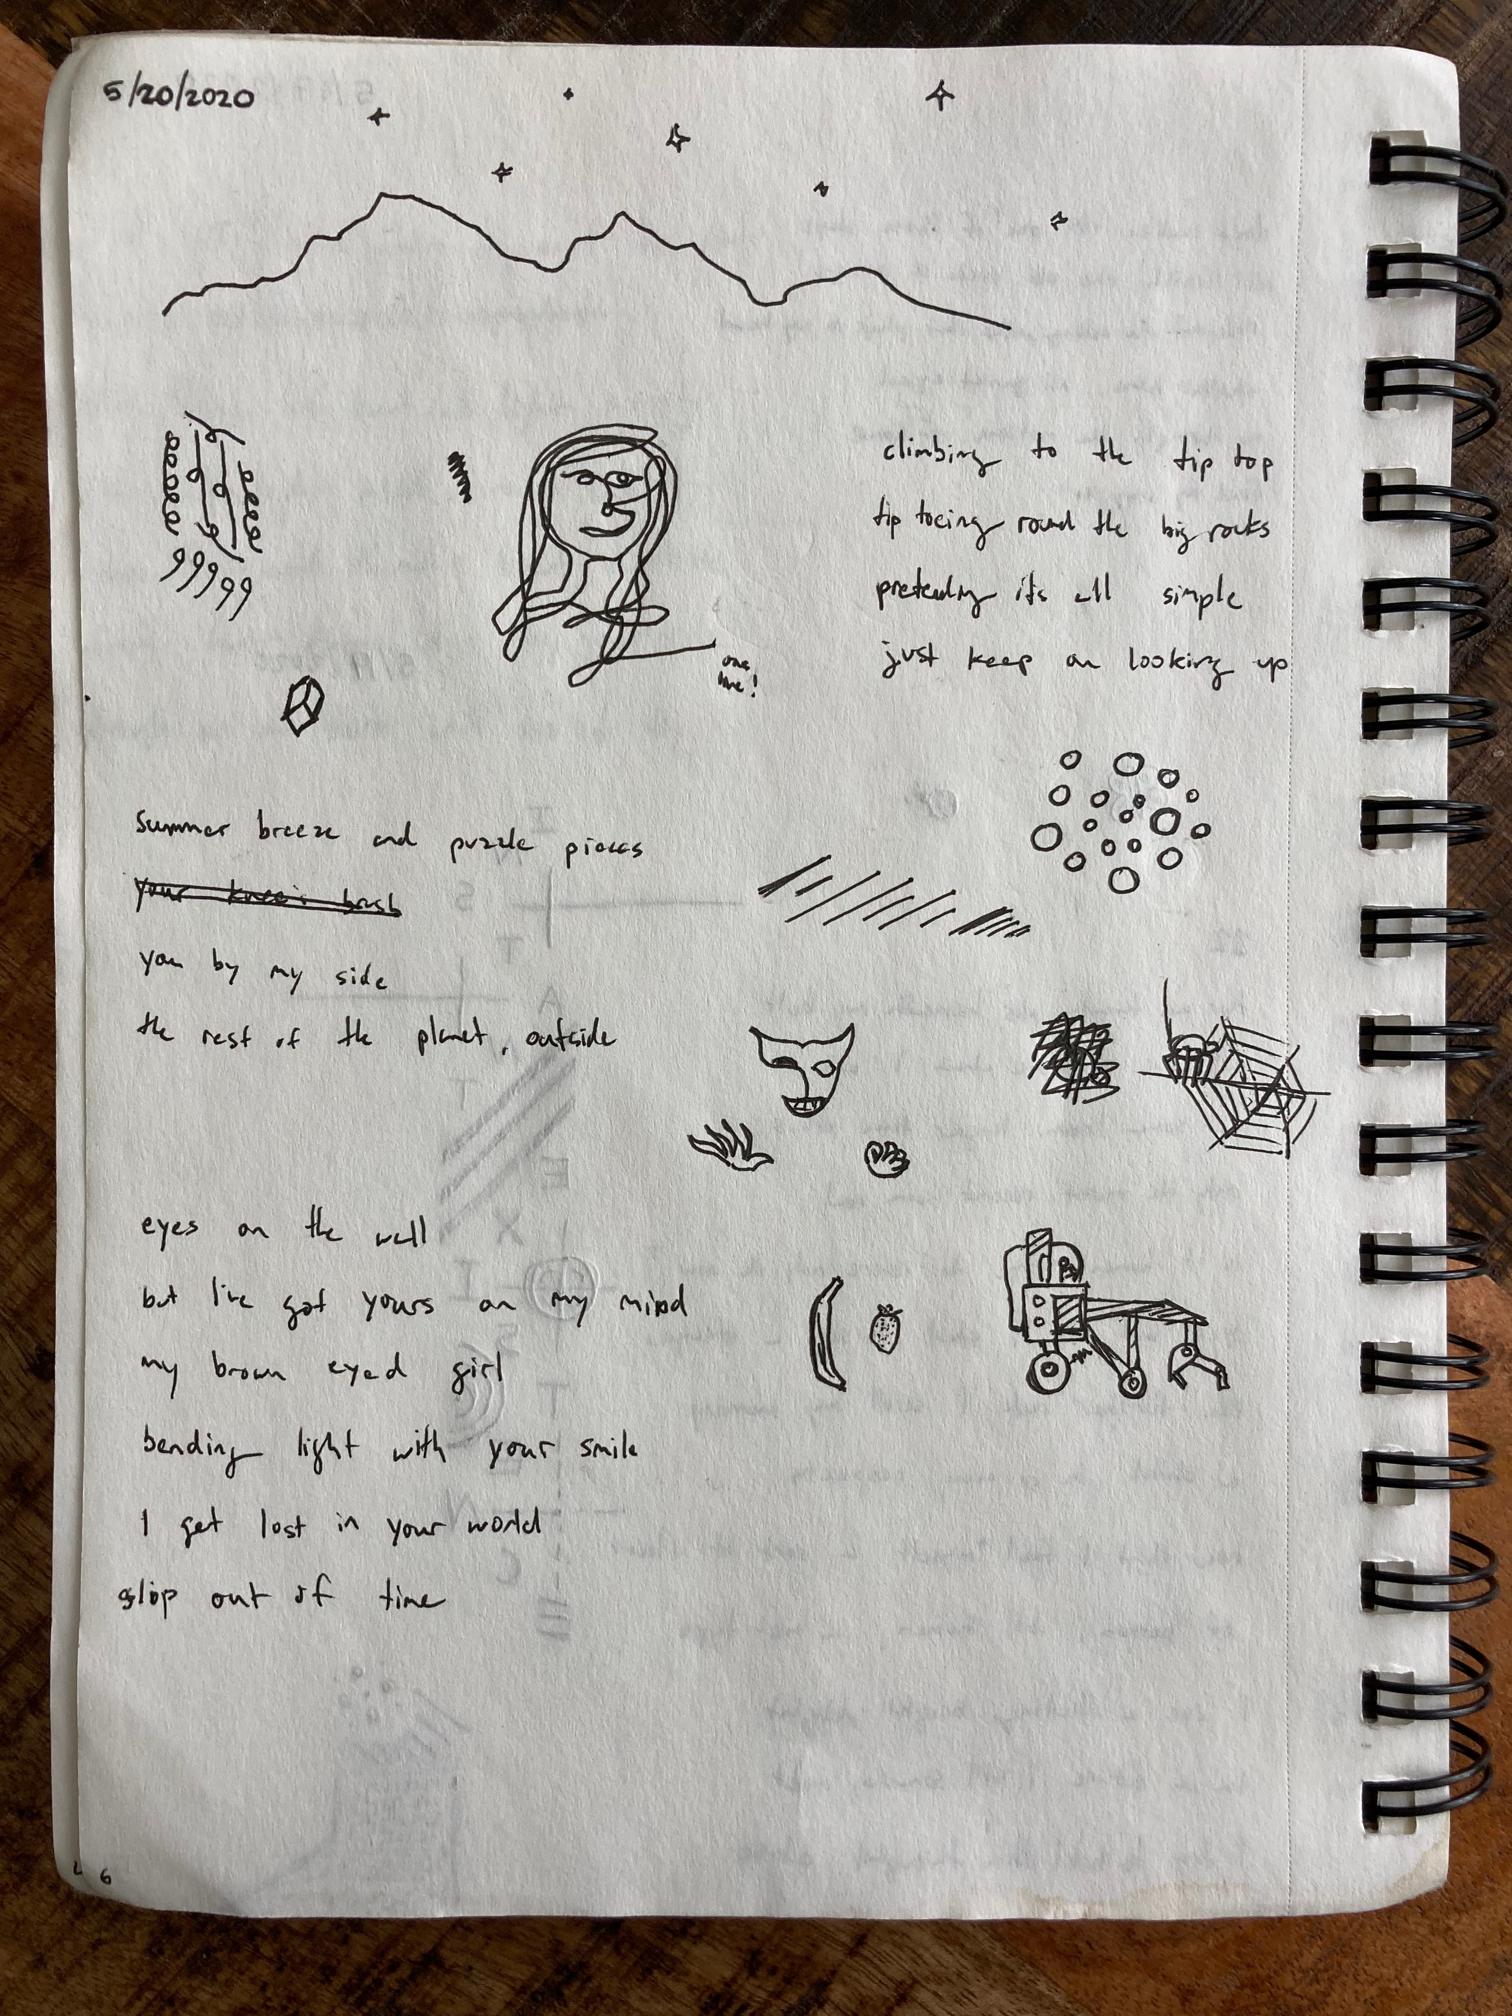 5/20/2020
climbing to the tip top
tip toeing round the big rocks
pretending its all simple
just keep on looking up
one
line!
Summer breeze and puzzle pieces
your knees brush
you by my side
the rest of the planet, outside
eyes on the wall
but I've got yours on my mind
my brown eyed girl
bending light with your smile
I get lost in your world
slip out of time
6